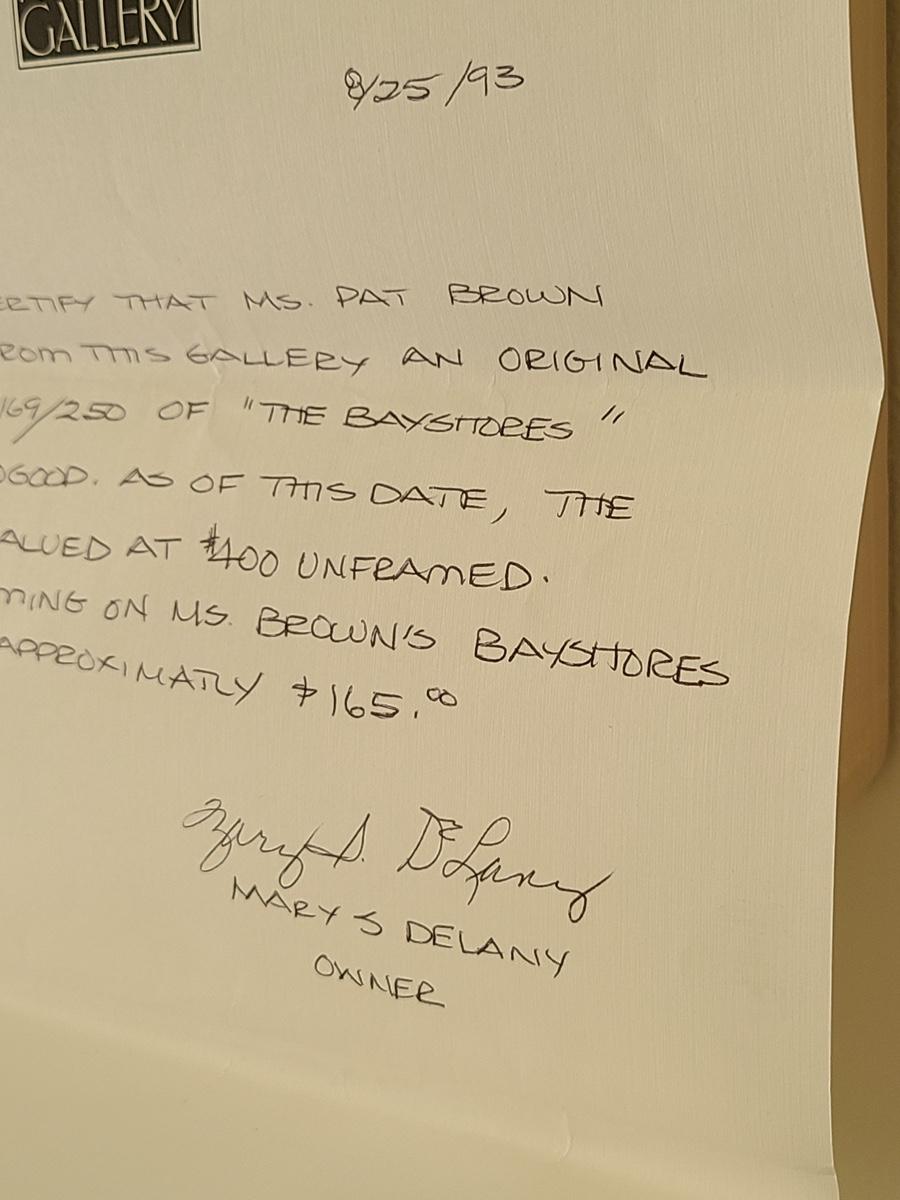 GALLERY
8/25/93
ERTIFY THAT MS. PAT BROWN
ROM THIS GALLERY AN ORIGINAL
169/250 OF "THE BAYSHORES"
OGOOD. AS OF THIS DATE, THE
ALUED AT $400 UNFRAMED.
MING ON MS. BROWN'S BAYSHORES
APPROXIMATLY $165.00
Mary S. DeLany
MARY S DELANY
OWNER